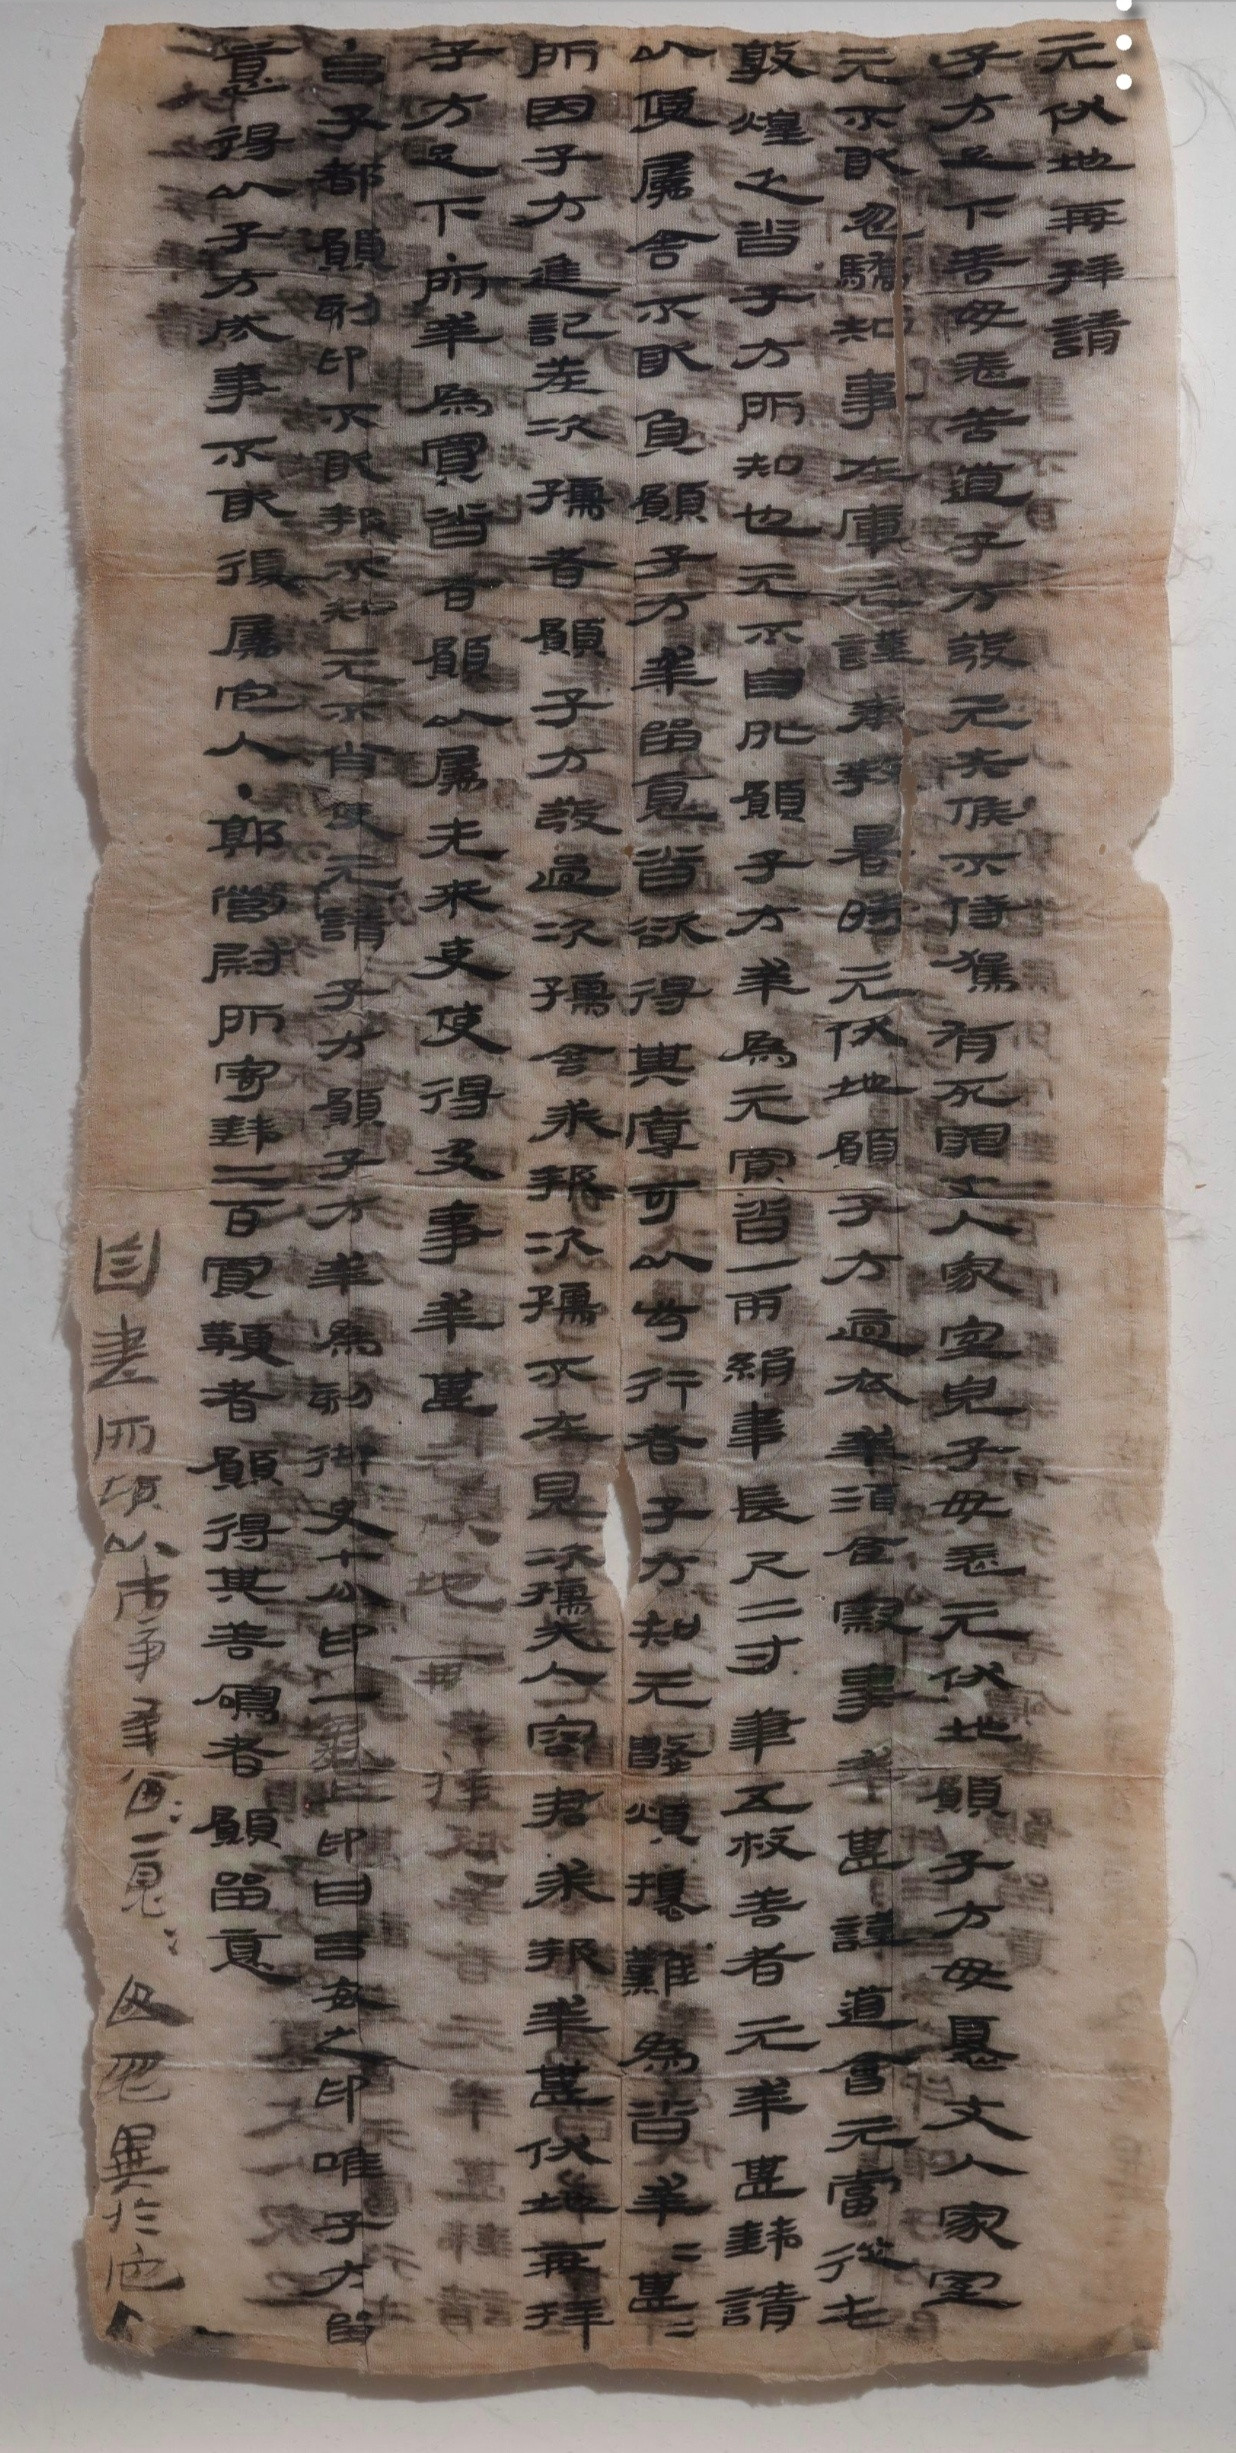 元伏地再拜請
子方足下善毋恙苦道子方發元失候不侍駕有死罪丈人家室兒子毋恙元伏地願子方毋憂丈人家室
元不敢忽驕知事在庫元謹奉教暑時元伏地願子方適衣幸酒食察事幸甚謹道會元當從屯
敦煌乏沓子方所知也元不自外願子方幸為元買沓一兩絹韋長尺二寸筆五枚善者元幸甚錢請
以便屬舍不敢負願子方幸留意沓欲得其厚可以步行者子方知元數煩擾難為沓幸=甚=
所因子方進記差次孺者願子方發過次孺舍求報次孺不在見次孺夫人容君求報幸甚伏地再拜
子方足下所幸為買沓者願以屬先來吏使得及事幸甚元伏地再拜
・呂子都願刻印不敢報不知元不肖使元請子方願子方幸為刻御史七分印一龜上印曰呂安之印唯子方留
意得以子方成事不敢復屬它人・郭營尉所寄錢二百買鞭者願得其善鳴者願留意
自書所願以市事幸留=意=毋忽異於它人